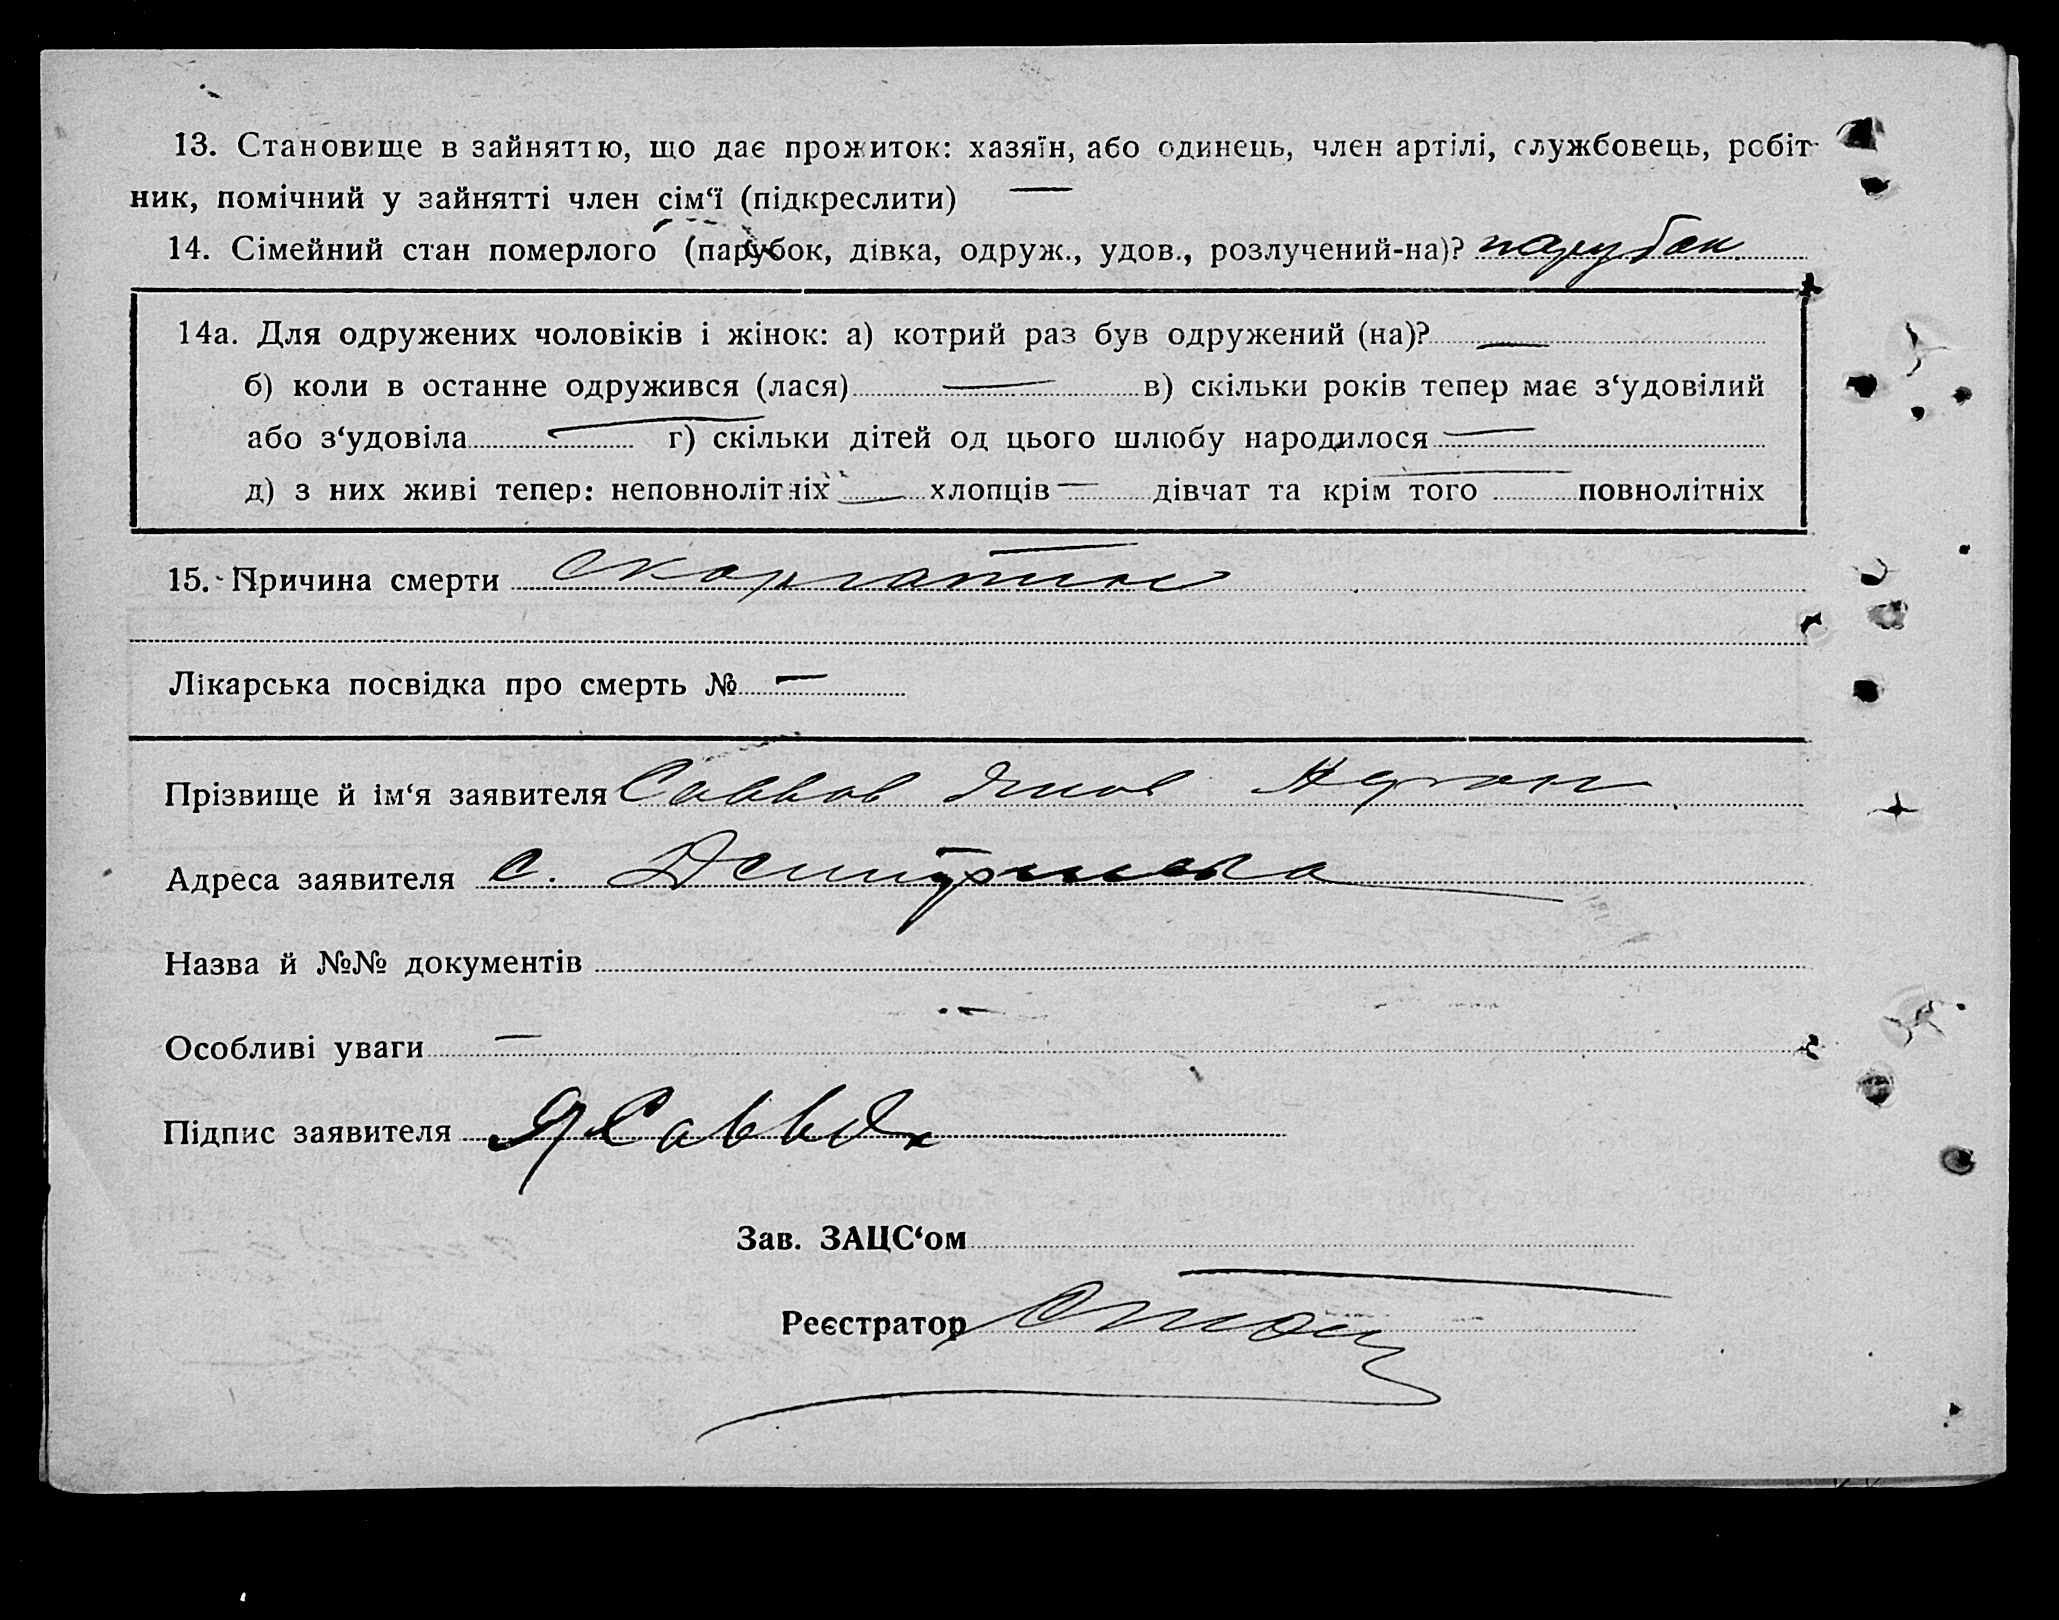 13. Становище в зайняттю, що дає прожиток: хазяїн, або одинець, член артілі, службовець, робіт-
ник, помічний у зайнятті член сім‘ї (підкреслити) —
14. Сімейний стан померлого (парубок, дівка, одруж., удов., розлучений-на)? парубок
14а. Для одружених чоловіків і жінок: а) котрий раз був одружений (на)? —
б) коли в останнє одружився (лася) — в) скільки років тепер має з‘удовілий
або з‘удовіла — г) скільки дітей од цього шлюбу народилося —
д) з них живі тепер: неповнолітніх — хлопців — дівчат та крім того — повнолітніх
15. Причина смерти скарлатина
Лікарська посвідка про смерть № —
Прізвище й ім‘я заявителя Саввов Яков
Адреса заявителя с.
Назва й №№ документів
Особливі уваги —
Підпис заявителя ЯСаввов
Зав. ЗАЦС‘ом
Реєстратор